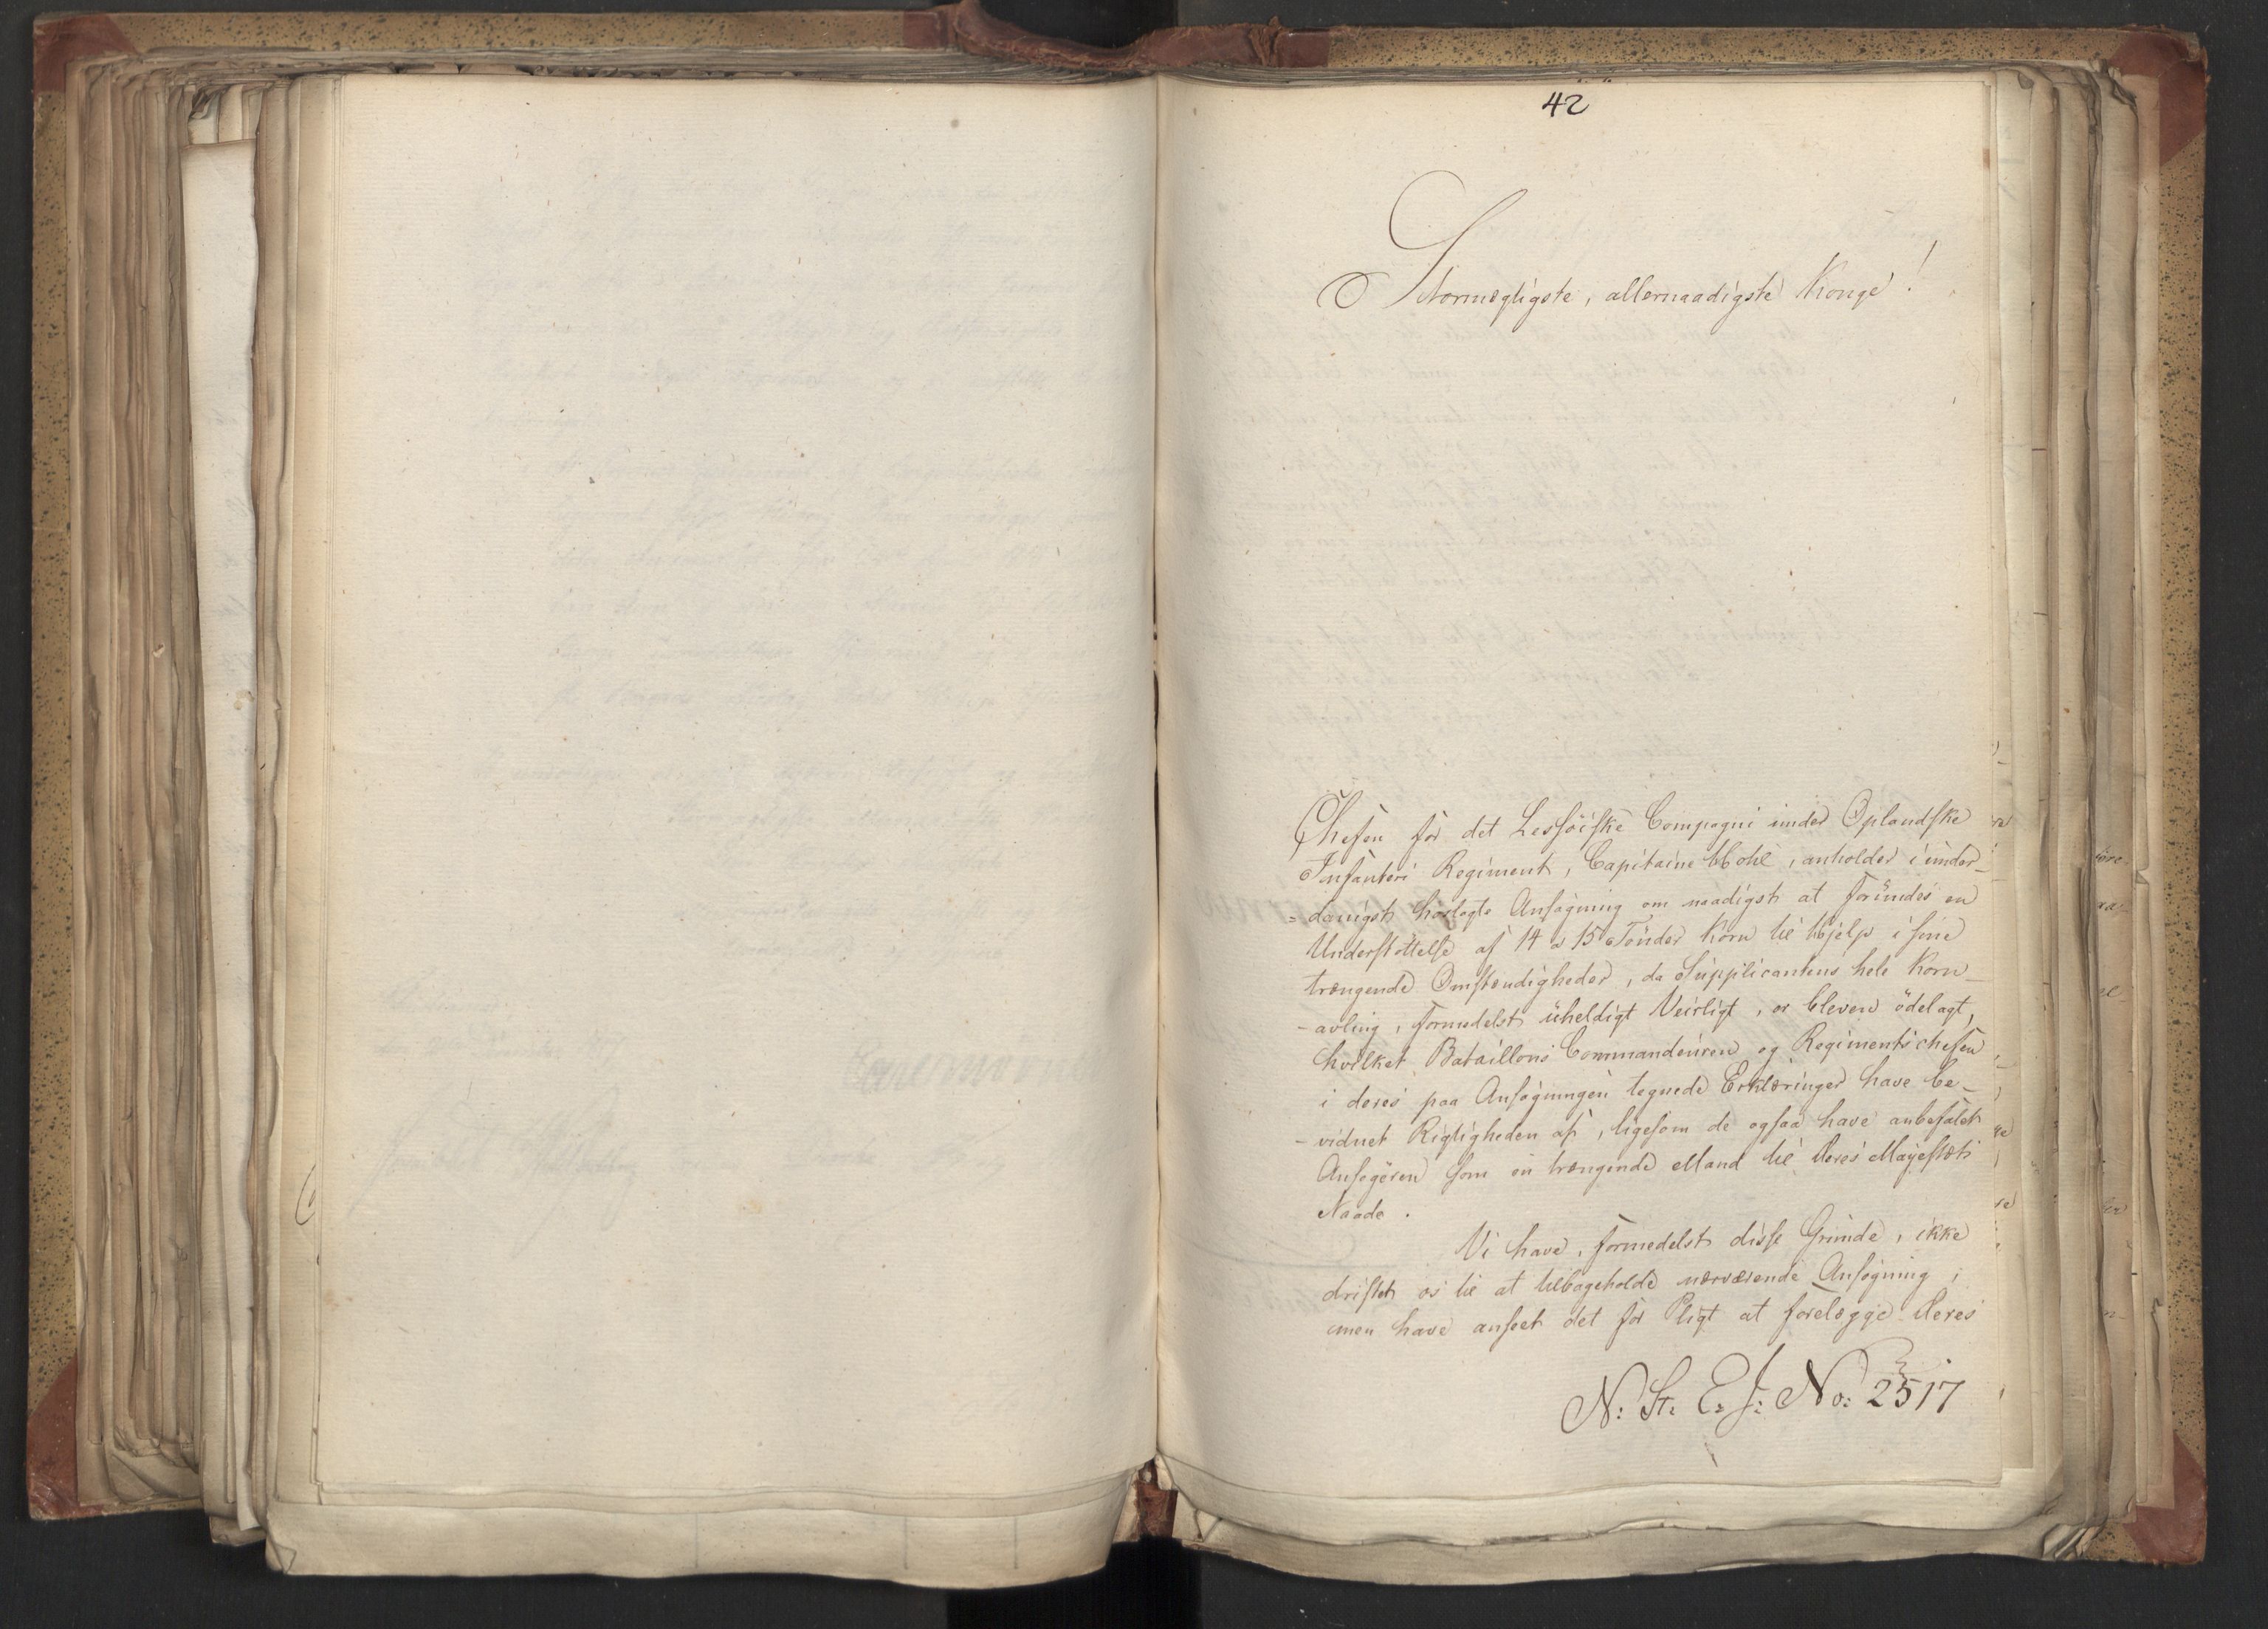 42
Stormægtigste, allernaadigste Konge!
Chefen for det Lessöiske Compagni under Oplandske
Infanteri Regiment, Capitaine Hohl, anholder i under-
=danigst hoslagte Ansøgning om naadigst at forundes en
Understöttelse af 14 a 15 Tönder Korn til Hjelp i sine
trængende Omstændigheder, da Supplicantens hele Korn-
-avling, formedelst uheldigt Veirligt, er bleven ödelagt,
hvilket Bataillons Commandeuren og Regimentschefen
i deres paa Ansøgningen tegnede Erklæringer have be-
-vidnet Rigtigheden af, ligesom de ogsaa have anbefalet
Ansøgeren som en trængende Mand til Deres Majestæts
Naade.
Vi have, formedelst disse Grunde, ikke
dristet os til at tilbageholde nærværende Ansøgning,
men have anseet det for Pligt at forelægge Deres
N: St: E: J: No: 2517